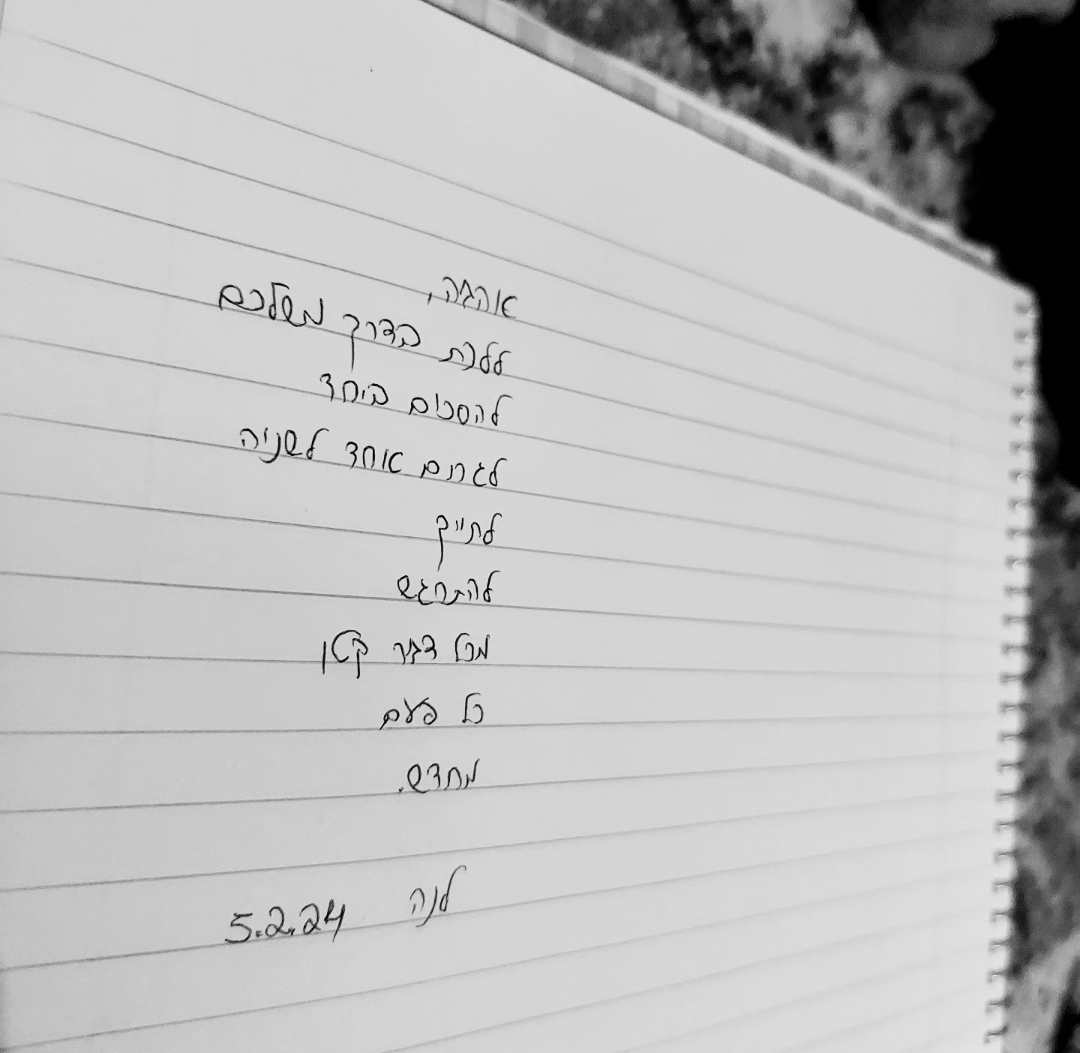 אהבה,
ללכת בדרך משלכם
להסכים ביחד
לגרום אחד לשניה
לחייך
להתרגש
מכל דבר קטן
כל פעם
מחדש.
לנה 5.2.24